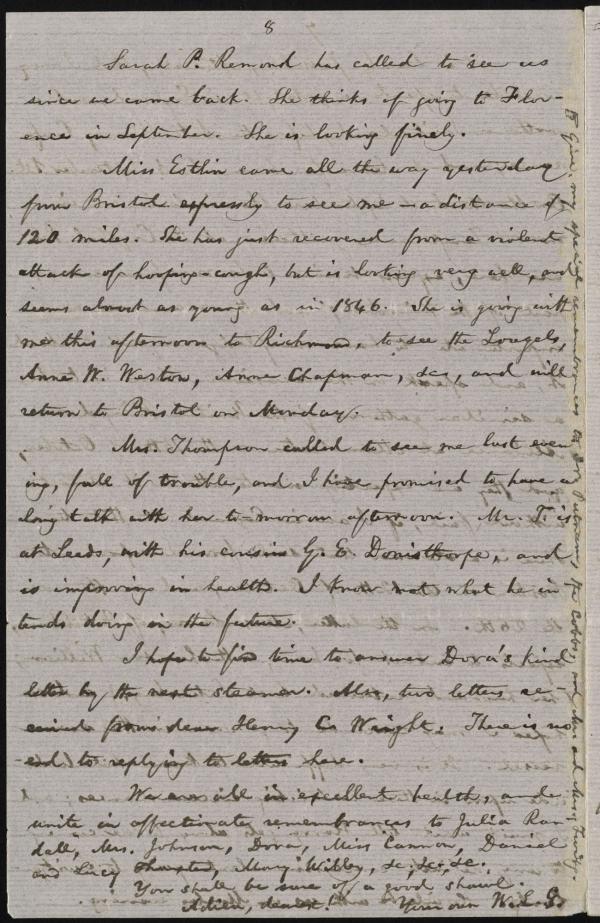 8
Sarah P. Remond has called to see us
since we came back. She thinks of going to Flor-
ence in September. She is looking finely.
Miss Estlin came all the way yesterday
from Bristol expressly to see me — a distance of
120 miles. She has just recovered from a violent
attack of hooping-cough, but is looking very well, and
seems almost as young as in 1846. She is going with
me this afternoon to Richmond, to see the Laugels,
Anne W. Weston, Anne Chapman, &c, and will
return to Bristol on Monday.
Mrs. Thompson called to see me last even-
ing, full of trouble, and I have promised to have a
long talk with her to-morrow afternoon. Mr. T. is
at Leeds, with his cousin G. E. Donisthorpe, and
is improving in health. I know not what he in
tends doing in the future.
I hope to find time to answer Dora's kind
letter by the next steamer. Also, two letters re-
ceived from dear Henry C. Wright. There is no
end to replying to letters here.
We are all in excellent health, and
unite in affectionate remembrances to Julia Ran
dall, Mrs. Johnson, Dora, Miss Cannon, Daniel
and Lucy Thaxter, Mary Willey, &c, &c, &c.
You shall be sure of a good shawl.
Adieu, dearest! Your own W. L. G.
Give my special remembrances to the Putnams, the Cobbs, and